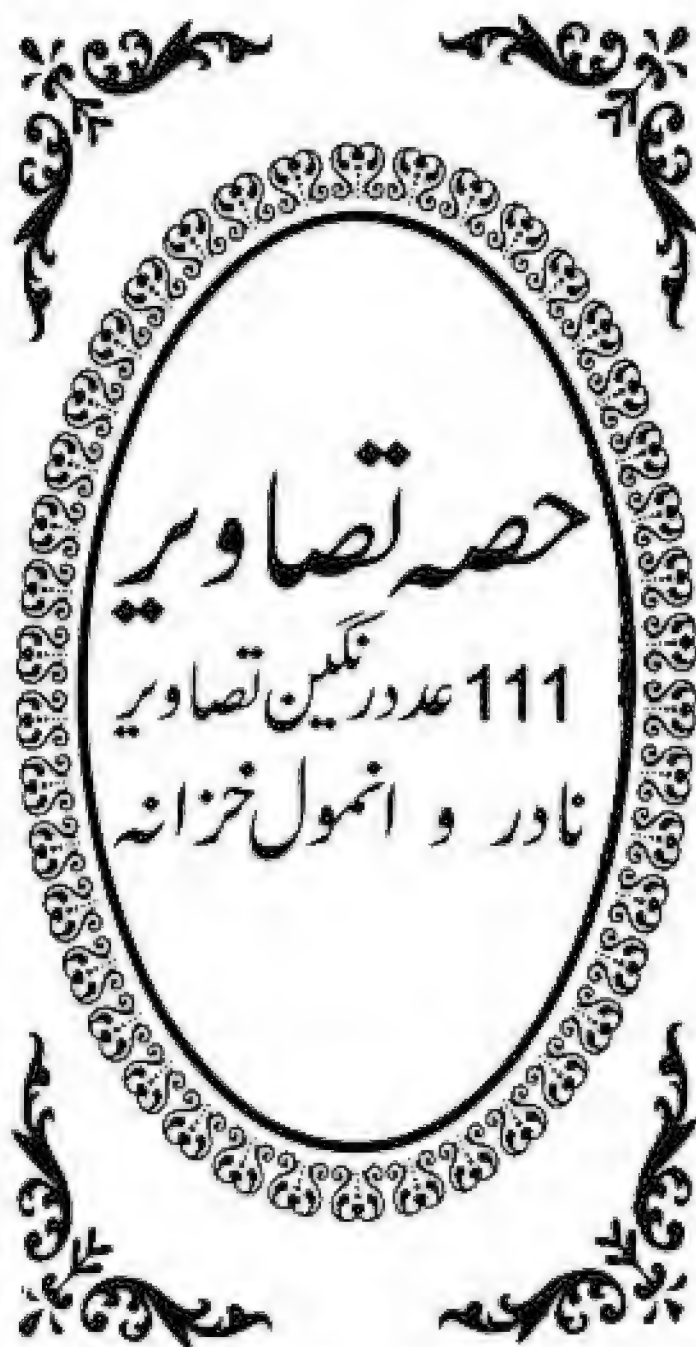 حصہ تصاویر
111 عدد رنگین تصاویر
نادر و انمول خزانہ